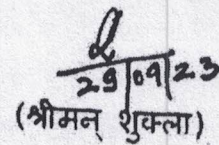 29/09/23
(श्रीमन् शुक्ला)